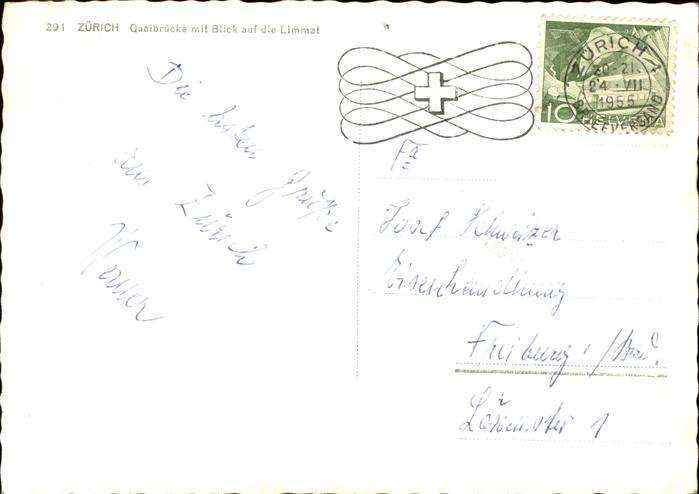 291 ZÜRICH Quaibrücke mit Blick auf die Limmat
Die besten Grüße
aus Zürich
Werner
ZÜRICH 1
20-21
24.VII
1955
BRIEFVERSAND
10 HELVETIA
Fa
Josef Schweizer
Eisenhandlung
Freiburg i/Brsg.
1